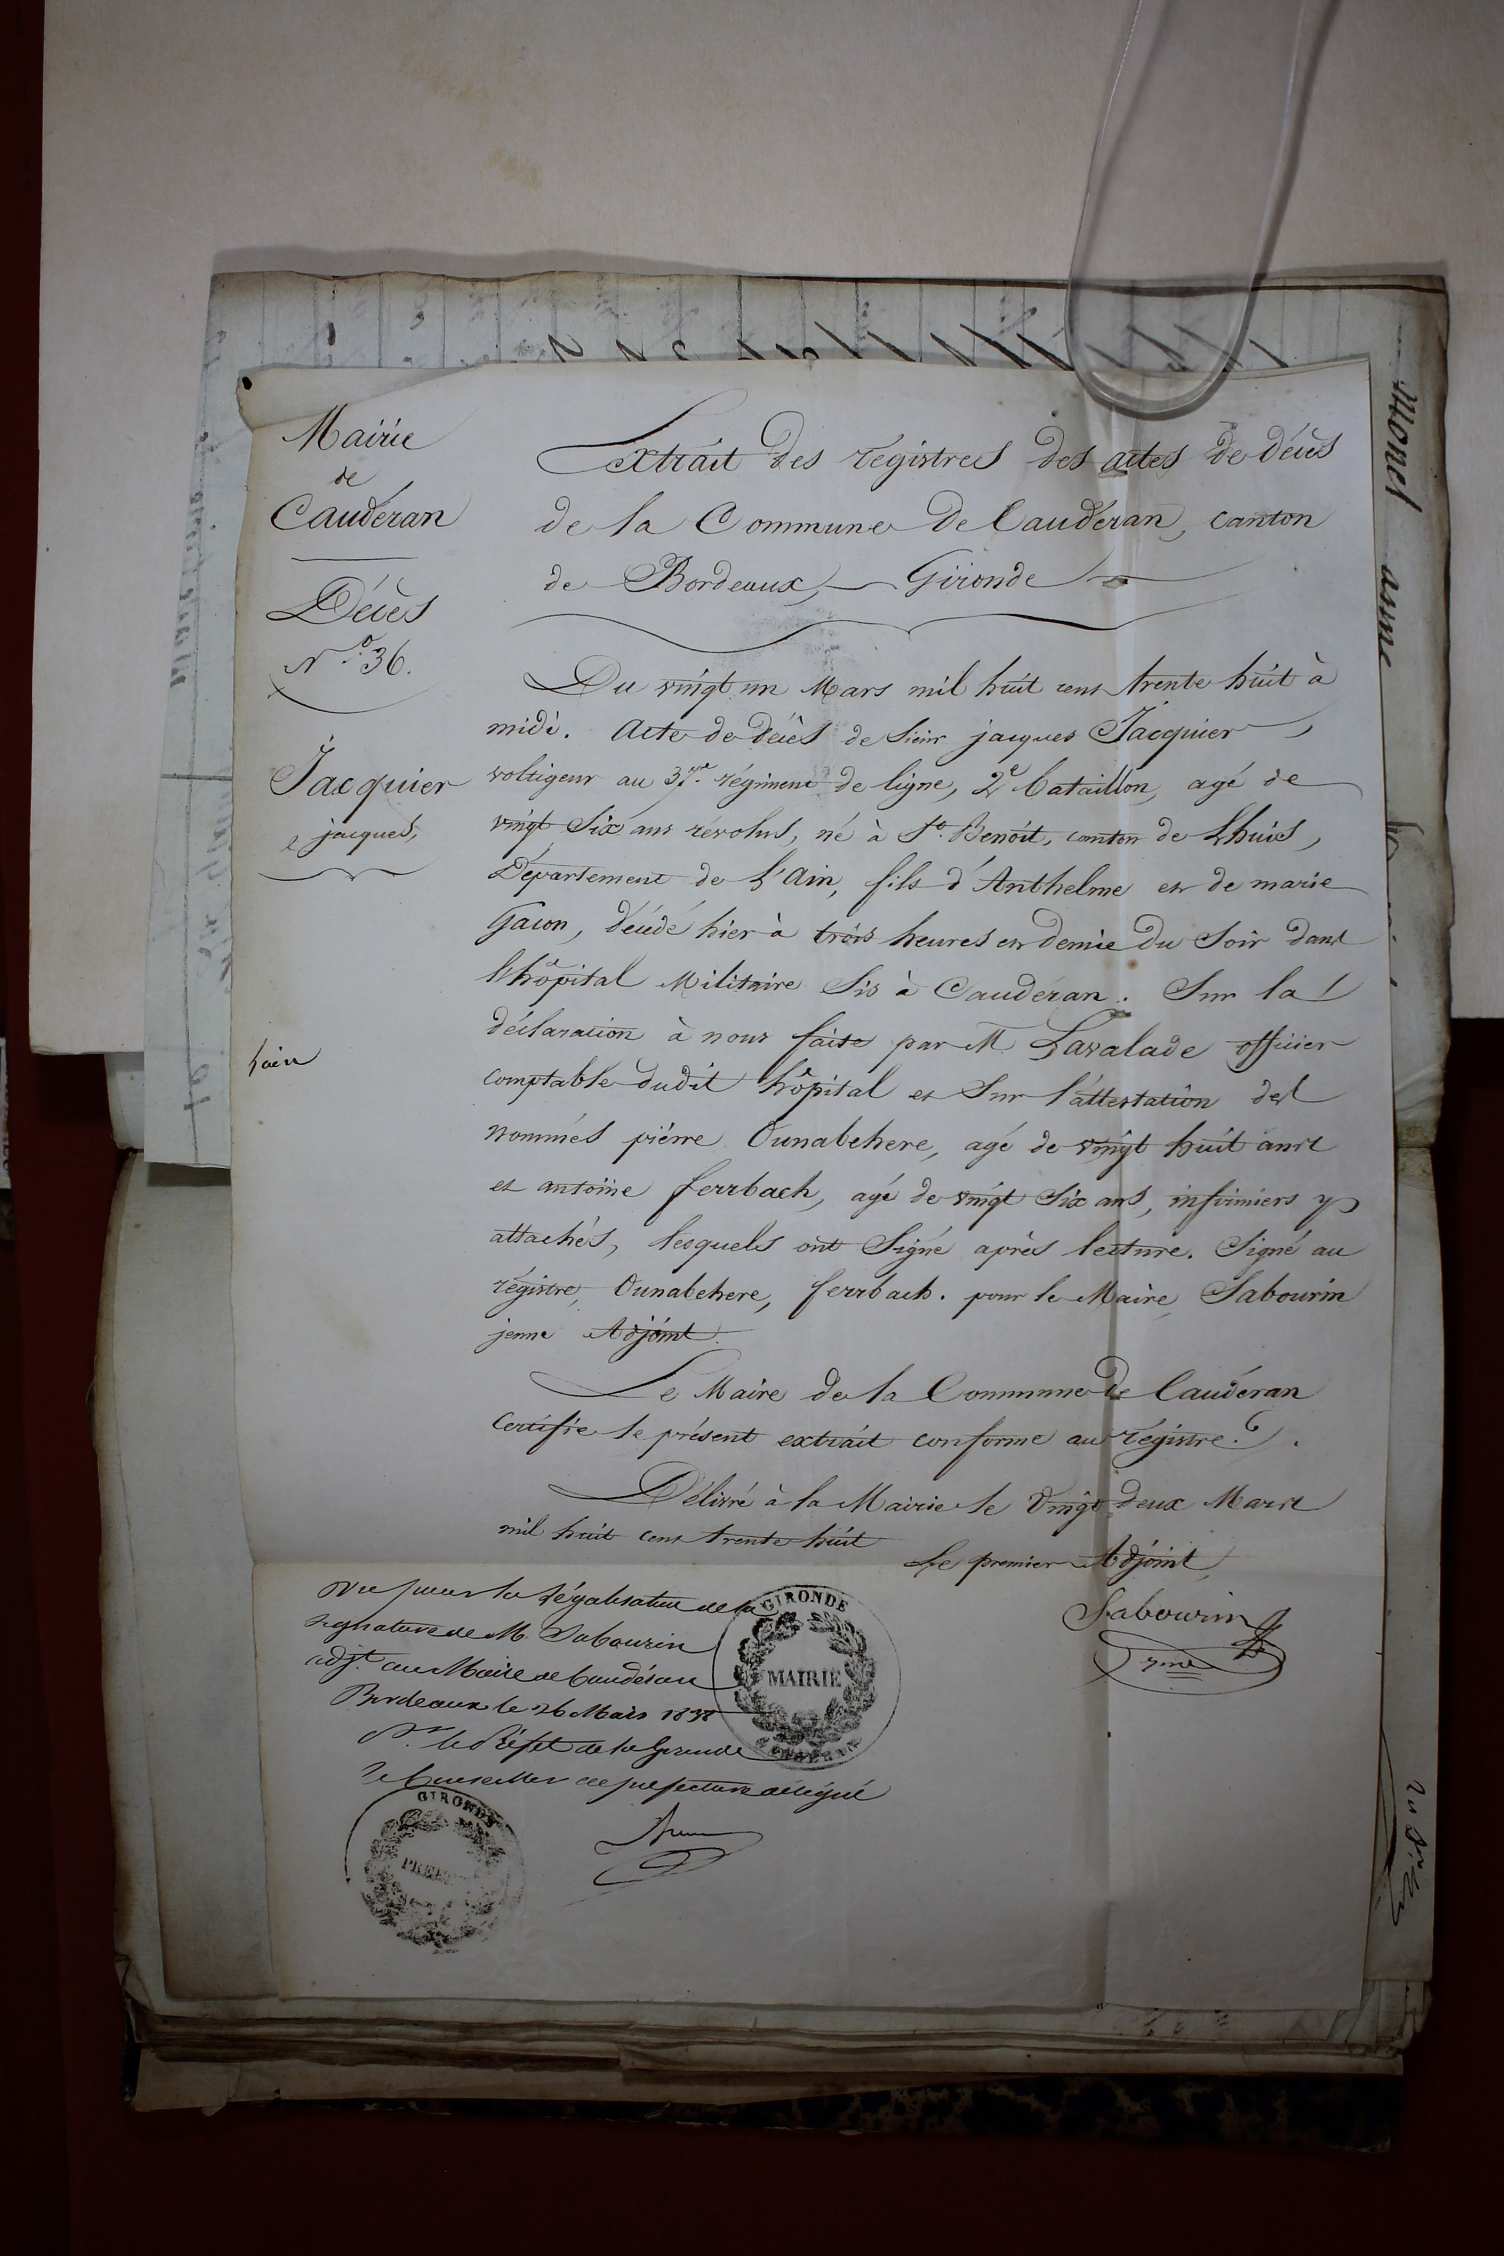 Mairie
de
Caudéran
Décès
N.o 36.
Jacquier
jacques,
Extrait des régistres des actes de décès
de la Commune de Caudéran, canton
de Bordeaux, Gironde
Du vingt un Mars mil huit cent trente huit à
midi. Acte de décès de Sieur jacques Jacquier
voltigeur au 37.e régiment de ligne, 2e bataillon, agé de
vingt Six ans révolus, né à St. Benoit, canton de Lhuis,
Département de L'Ain, fils d'Anthelme et de marie
Gacon, décédé hier à trois heures et demie du Soir dans
l'hôpital Militaire Sis à Caudéran. Sur la
déclaration à nous faite par M. Lavalade officier
comptable dudit hôpital et Sur l'attestation des
nommés pierre Ounabehere, agé de vingt huit ans
et antoine ferrbach, agé de vingt Six ans, infirmiers y
attachés, lesquels ont Signé après lecture. Signé au
régistre, Ounabehere, ferrbach. pour le Maire, Sabourin
jeune Adjoint.
Le Maire de la Commune de Caudéran
Certifie le présent extrait conforme au régistre.
Délivré à la Mairie le Vingt deux Mars
mil huit cent trente huit
Le premier Adjoint,
Sabourin
jne
Vu pour la légalisation de la
signature de M. Sabourin
adjt. au Maire de Caudéran
Bordeaux le 26 Mars 1838
Pr. le Préfet de la Gironde
Le Conseiller de préfecture délégué
GIRONDE
MAIRIE
GIRONDE
Monet
anne